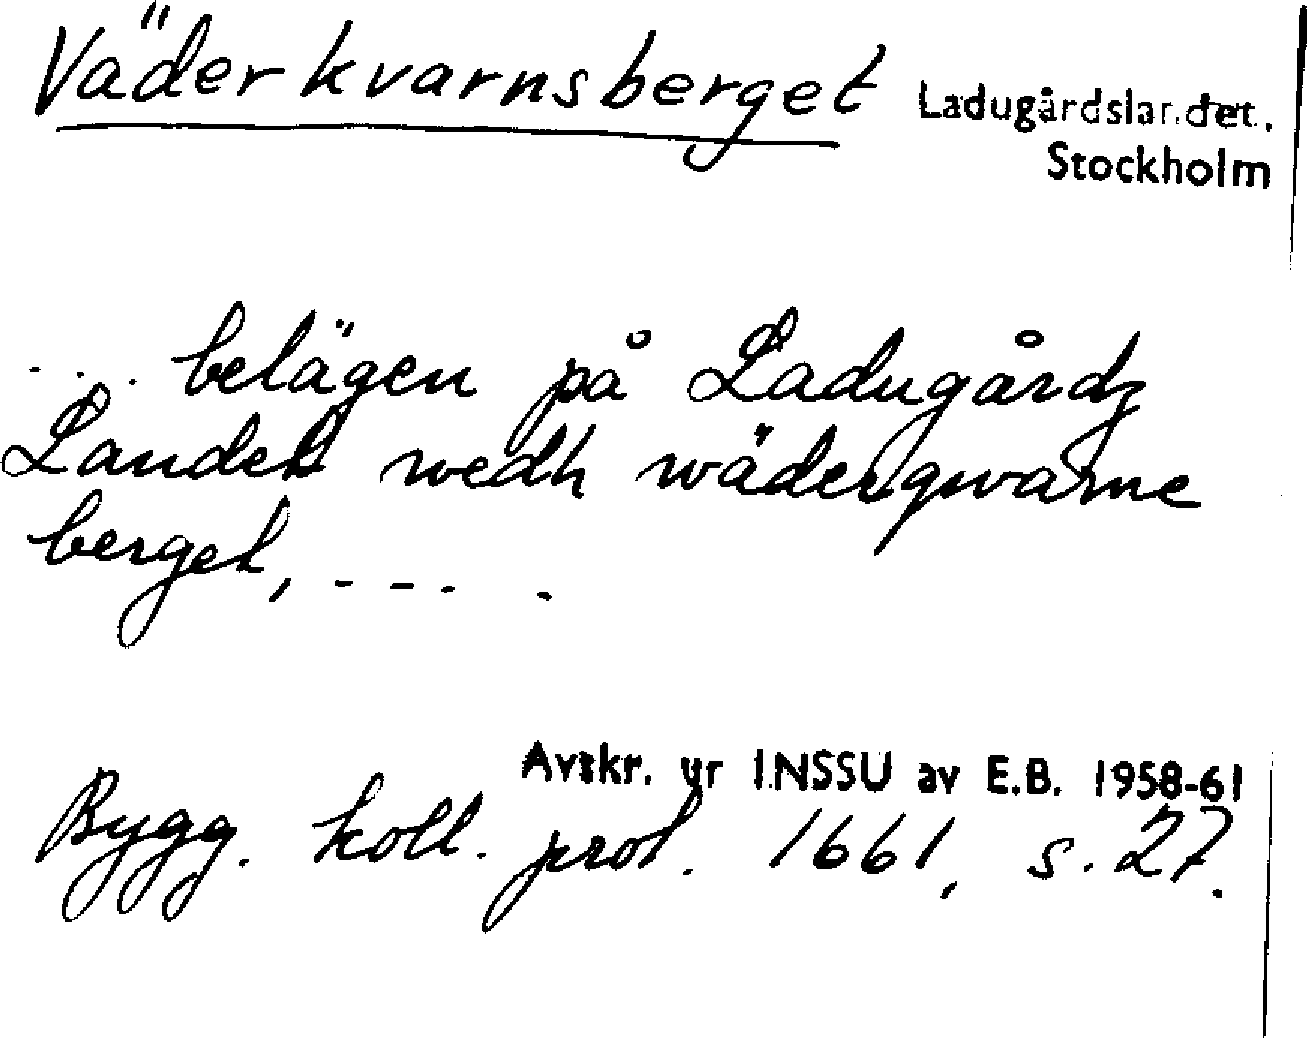 Väderkvarnsberget Ladugårdslandet.
Stockholm
... belägen på Ladugårdz
Landet wedh wäderqwarne
berget, - - - -
Avskr. ur INSSU av E.B. 1958-61
Bygg. koll. prot. 1661, s. 27.